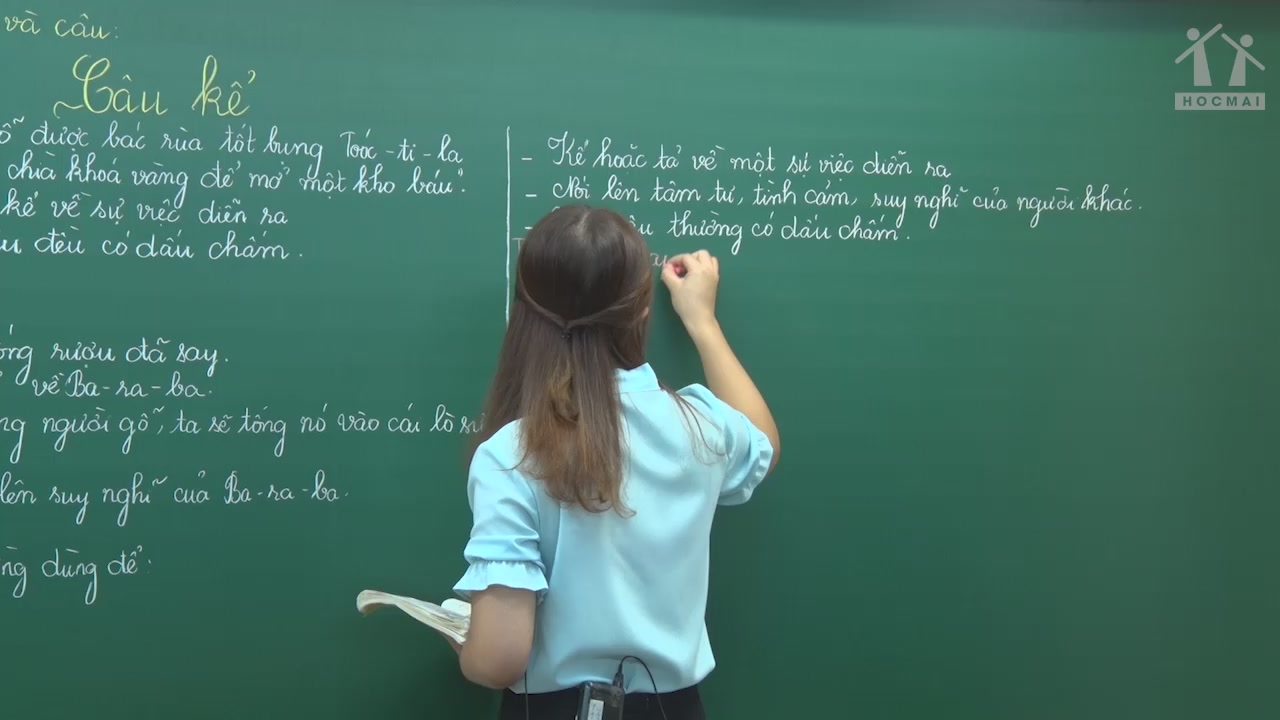 và câu:
Câu kể
được bác rùa tốt bụng Toóc-ti-la
chìa khoá vàng để mở một kho báu".
kể về sự việc diễn ra
đều có dấu chấm.
rượu đã say.
về Ba-ra-ba.
người gỗ, ta sẽ tống nó vào cái lò
lên suy nghĩ của Ba-ra-ba.
dùng để:
- Kể hoặc tả về một sự việc diễn ra
- Nói lên tâm tư, tình cảm, suy nghĩ của người khác.
thường có dấu chấm.
HOCMAI